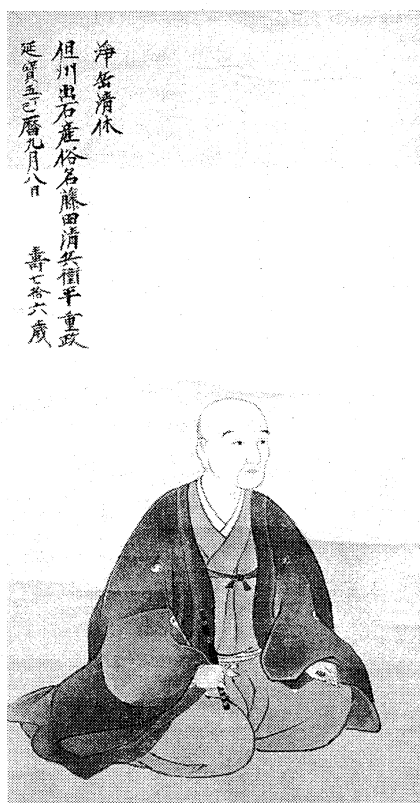 淨岳清休
但州出石産俗名藤田清兵衞平重政
延寳五丁巳暦九月八日　壽七拾六歳